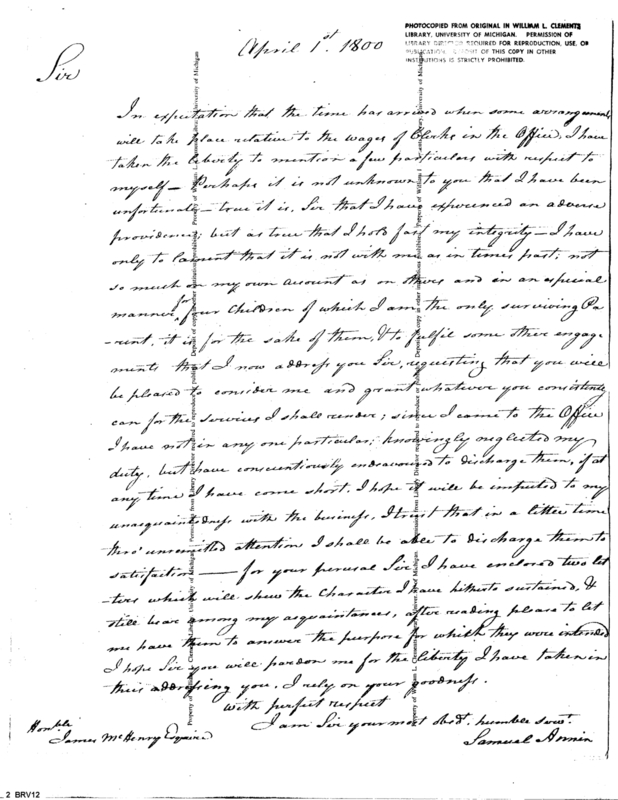 PHOTOCOPIED FROM ORIGINAL IN WILLIAM L. CLEMENTS
LIBRARY, UNIVERSITY OF MICHIGAN. PERMISSION OF
LIBRARY DIRECTOR REQUIRED FOR REPRODUCTION, USE, OR
PUBLICATION. DEPOSIT OF THIS COPY IN OTHER
INSTITUTIONS IS STRICTLY PROHIBITED.
April 1st. 1800
Sir
In expectation that the time has arrived when some arrangements
will take place relative to the wages of Clerks in the Office, I have
taken the liberty to mention a few particulars with respect to
myself — Perhaps it is not unknown to you that I have been
unfortunate — true it is, Sir that I have experienced an adverse
providence; but as true that I hold fast my integrity — I have
only to lament that it is not with me as in times past; not
so much on my own account as on others and in an especial
manner for four Children of which I am the only surviving Pa
-rent, it is for the sake of them, & to fulfil some other engage
ments that I now address you Sir, requesting that you will
be pleased to consider me and grant whatever you consistently
can for the services I shall render; since I came to the Office
I have not in any one particular, knowingly neglected my
duty, but have conscientiously endeavoured to discharge them, if at
any time I have come short, I hope it will be imputed to my
unacquaintedness with the business, I trust that in a little time
thro' unremitted attention I shall be able to discharge them to
satisfaction — for your perusal Sir, I have enclosed two let
-ters which will shew the Character I have hitherto sustained, &
still bear among my acquaintances, after reading please to let
me have them to answer the purpose for which they were intended
I hope Sir you will pardon me for the liberty I have taken in
thus addressing you. I rely on your goodness.
With perfect respect
I am Sir your most obdt. humble servt.
Samuel
Honble
James McHenry Esquire
2 BRV12